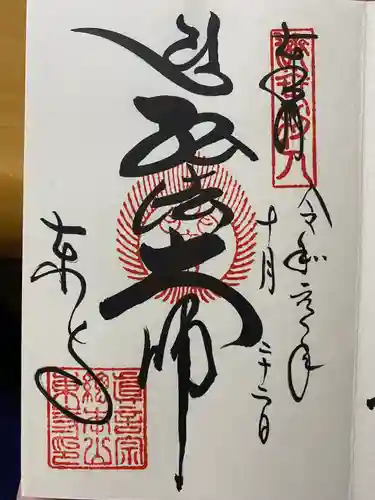 奉拝
令和元年
十月二十二日
弘法大師
東寺
真言宗
総本山
東寺印